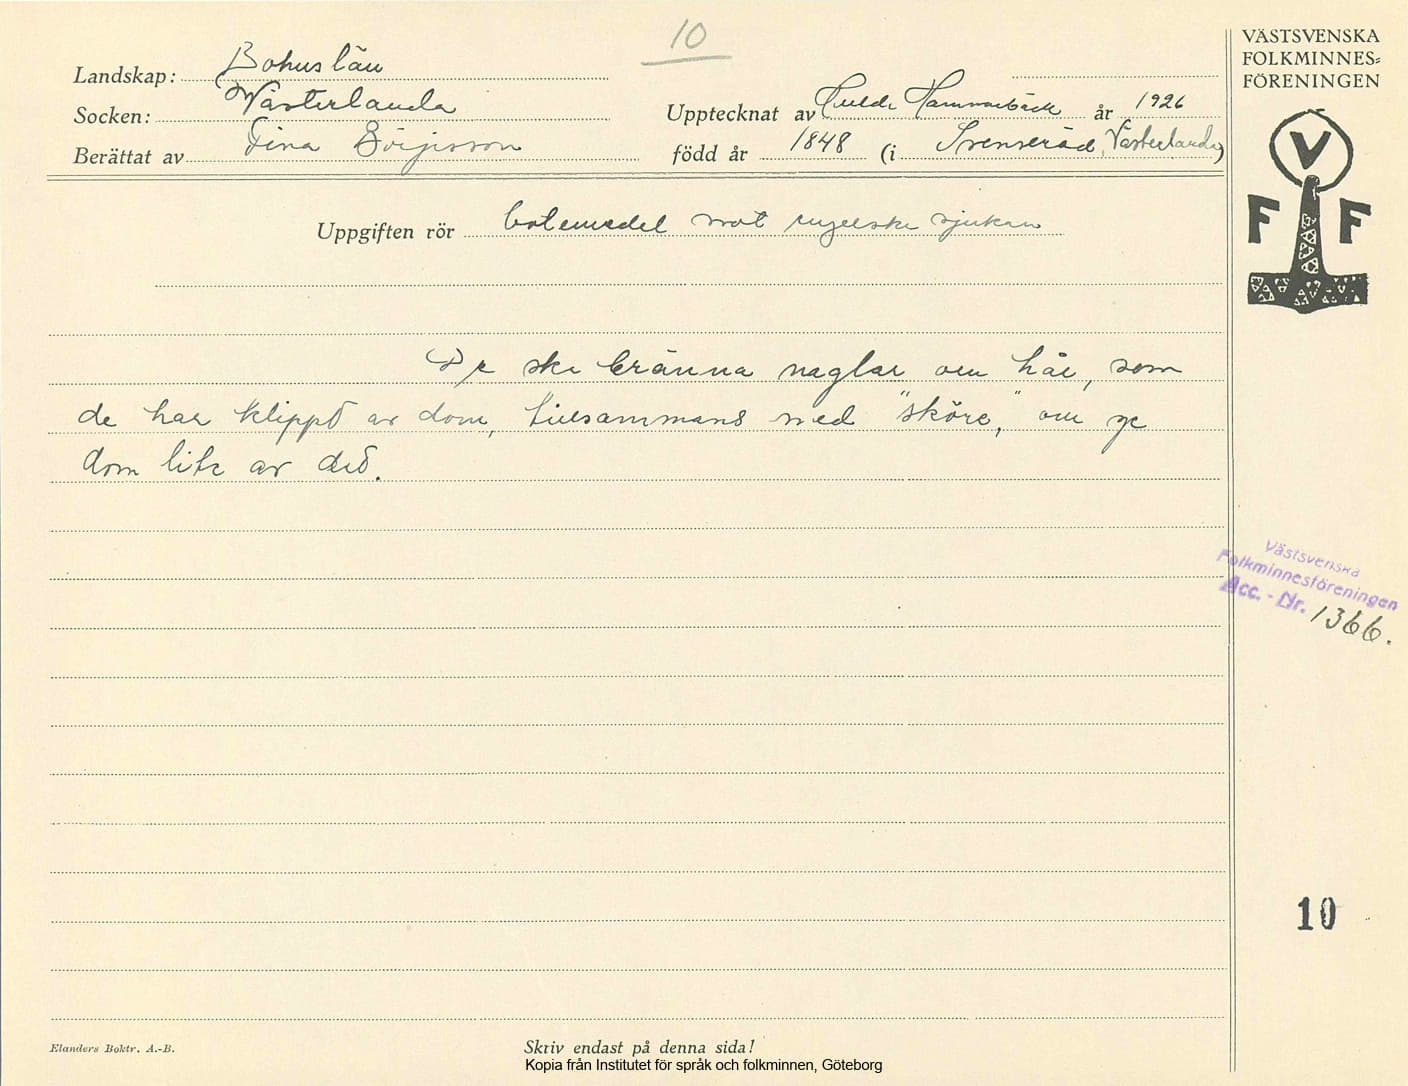 10
VÄSTSVENSKA
FOLKMINNES=
FÖRENINGEN
Landskap: Bohuslän
Socken: Västerlanda
Upptecknat av Hulda Hammarbäck år 1926
Berättat av Tina Börjesson
född år 1848 (i Svenseröd, Västerlanda)
V
F F
Uppgiften rör botemedel mot engelska sjukan
De ska bränna naglar ou hår, som
de har klippt av dom, tillsammans med "sköre," ou ge
dom lite av det.
Västsvenska
Folkminnesföreningen
Acc. - Nr. 1366.
10
Elanders Boktr. A.-B.
Skriv endast på denna sida!
Kopia från Institutet för språk och folkminnen, Göteborg